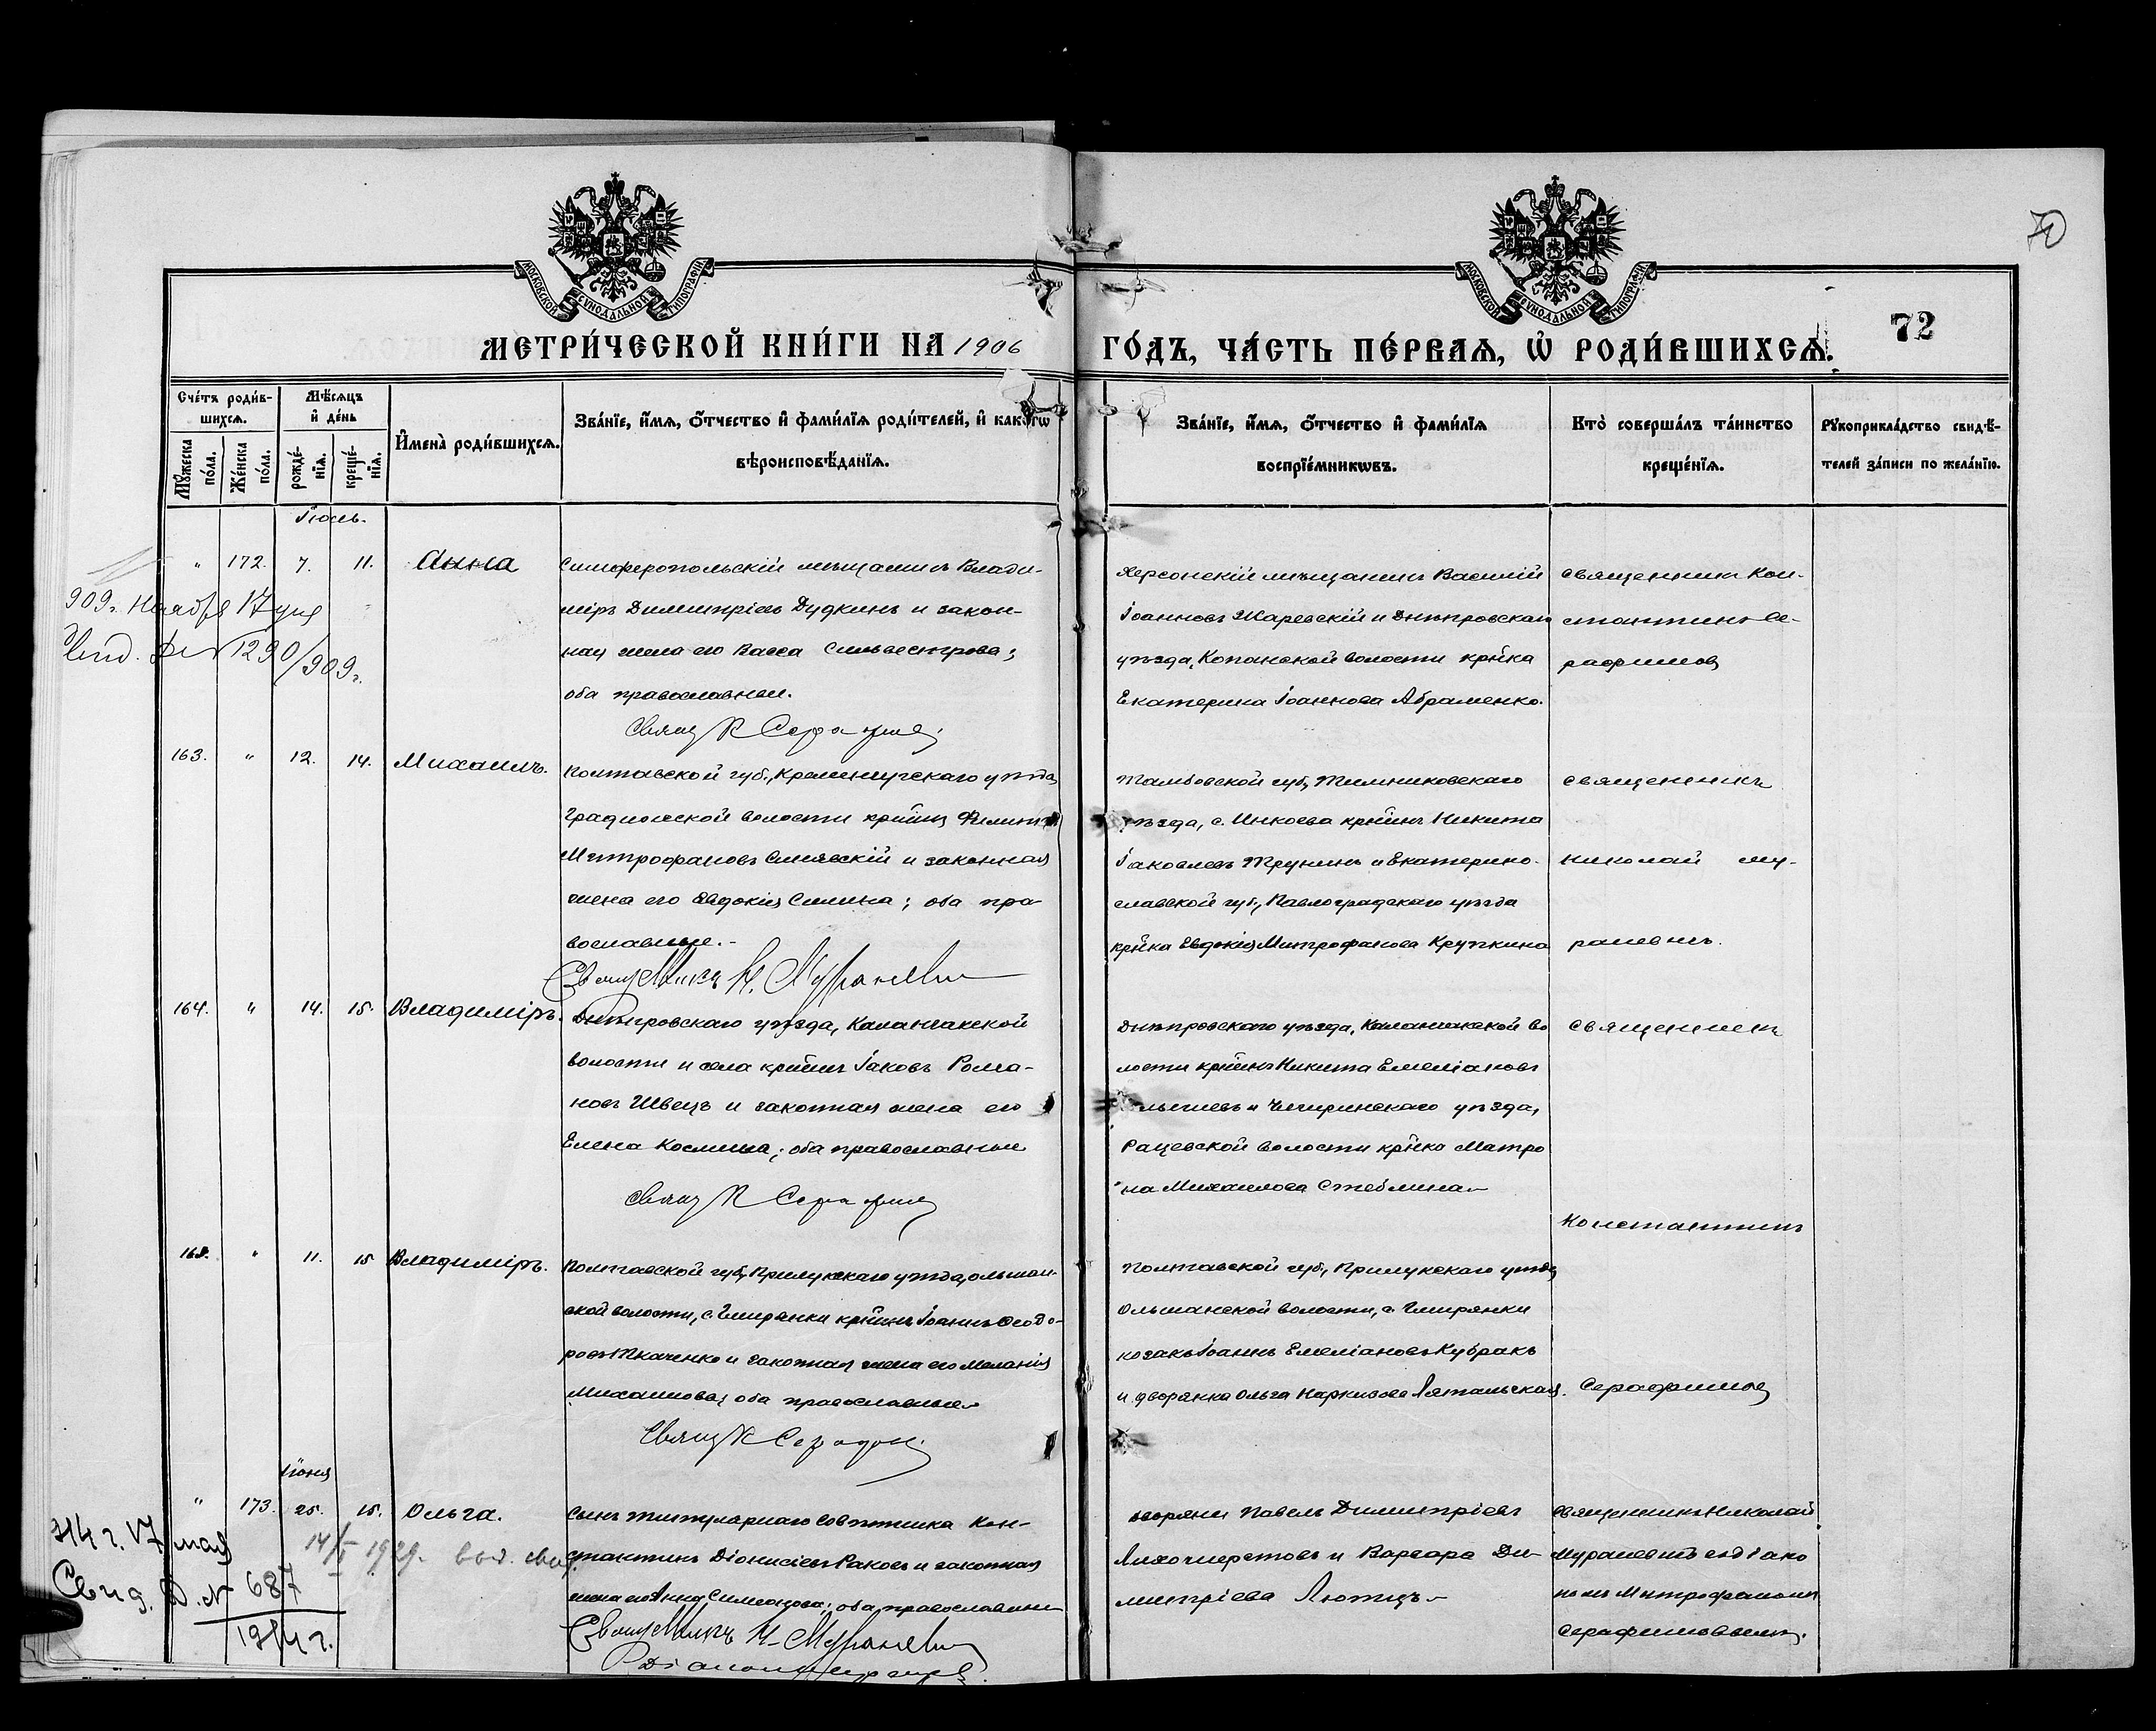 70
МОСКОВСКОЙ СѴНОДАЛЬНОЙ ТИПОГРАФІИ
МОСКОВСКОЙ СѴНОДАЛЬНОЙ ТИПОГРАФІИ
МЕТРИ́ЧЕСКОЙ КНИ́ГИ НА 1906
ГО́ДЪ, ЧА́СТЬ ПЕ́РВАѦ, Ѡ РОДИ́ВШИХСѦ.
72
Сче́тъ роди́в-
шихсѧ.
Мꙋ́жеска по́ла.
Же́нска по́ла.
Мѣ́сѧцъ
и҆ де́нь
рожде́-
нїѧ.
креще́-
нїѧ.
И҆мена̀ роди́вшихсѧ.
Зва́нїе, и҆́мѧ, ѻ҆́тчество и҆ фами́лїѧ роди́телей, и҆ како́гѡ
вѣроисповѣ́данїѧ.
Зва́нїе, и҆́мѧ, ѻ҆́тчество и҆ фами́лїѧ
воспрїе́мникѡвъ.
Кто̀ соверша́лъ та́инство
креще́нїѧ.
Рꙋкоприкла́дство свидѣ́-
телей за́писи по жела́нїю.
Іюль.
" 172. 7. 11. Анна
Симферопольскій мѣщанинъ Влади-
міръ Димитріевъ Дудкинъ и закон-
ная жена его Васса Сильвестрова;
оба православные.
Свящ К Серафим
Херсонскій мѣщанинъ Василій
Іоанновъ Жаревскій и Днѣпровскаго
уѣзда, Копанской волости кр\-нка
Екатерина Іоаннова Абраменко.
Священникъ Кон-
стантинъ Се-
рафимовъ
909 г. Ноября 17 дня
Свид. № 1290/909 г.
163. " 12. 14. Михаилъ.
Полтавской губ., Кременчугскаго уѣзда,
Градижской волости кр\-нинъ Филиппъ
Митрофановъ Синявскій и законная
жена его Евдокія Симина; оба пра
вославные.-
Священникъ Н. Муралевичъ
Тамбовской губ, Темниковскаго
уѣзда, с. Инкоева кр\-нинъ Никита
Іаковлевъ Трунинъ и Екатерино-
славской губ, Павлоградскаго уѣзда
кр\-нка Евдокія Митрофанова Крупкина
священникъ
Николай Му-
ралевичъ.
164. " 14. 15. Владиміръ.
Днѣпровскаго уѣзда, Каланчакской
волости и села кр\-нинъ Іаковъ Рома-
новъ Швецъ и законная жена его
Елена Космина; оба православные
Свящ К Серафим
Днѣпровскаго уѣзда, Каланчакской во
лости кр\-нинъ Никита Емеліановъ
и Чигиринскаго уѣзда,
Рацевской волости кр\-нка Матро
на Михаилова Стеблина
священникъ
Константинъ
165. " 11. 15 Владиміръ.
Полтавской губ, Прилукскаго уѣзда, Ольшан-
ской волости, с. Гмирянки кр\-нинъ Іоаннъ Ѳеодо-
ровъ Ткаченко и законная жена его Меланія
Михаилова; оба православные
Свящ К Серафим
Полтавской губ, Прилукскаго уѣзда
Ольшанской волости, с. Гмирянки
козакъ Іоаннъ Емеліановъ Кубракъ
и дворянка Ольга Наркизова
Серафимовъ
Іюня
" 173. 25. 15. Ольга.
Сынъ титулярнаго совѣтника Кон-
стантинъ Діонисіевъ Раковъ и законная
жена его Анна Симеонова; оба православные
Священникъ Н. Муралевичъ
Діаконъ
дворяне Павелъ Димитріевъ
Лихошерстовъ и Варвара Ди-
митріева Лютцъ
Священникъ Николай
Муралевичъ съ діако
номъ Митрофаномъ
Серафимовымъ.
914 г. 17 мая
Свид. Д. № 687
1914 г.
14/I 1929. выд. свид.